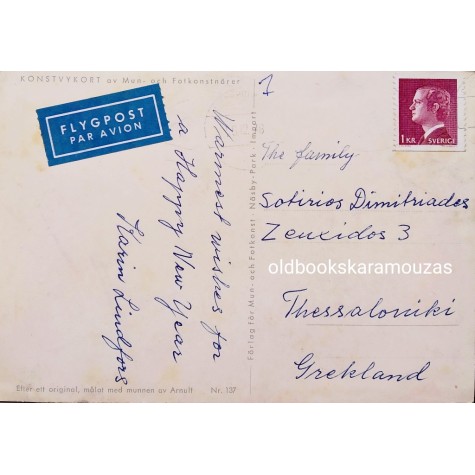 KONSTVYKORT av Mun- och Fotkonstnärer
FLYGPOST
PAR AVION
Warmest wishes for
a Happy New Year
Karin Lindfors
Efter ett original, målat med munnen av Arnulf
Nr. 137
Förlag för Mun- och Fotkonst · Näsby-Park · Import
1
1 KR SVERIGE
The family
Sotirios Dimitriades
Zeuxidos 3
oldbookskaramouzas
Thessaloniki
Grekland